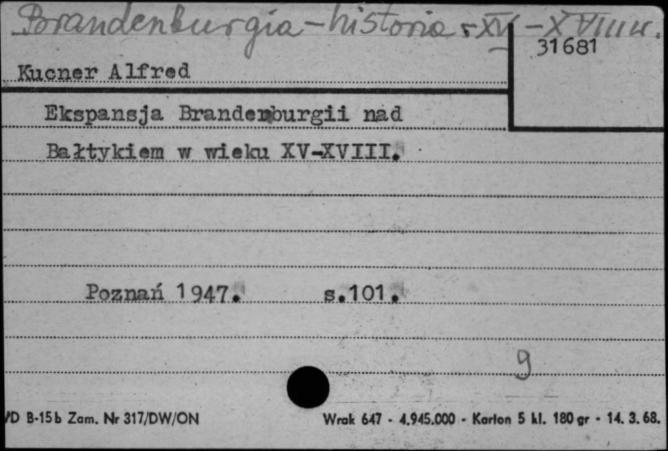 Brandenburgia - historia - XV - XVIII w.
31681
Kucner Alfred
Ekspansja Brandenburgii nad
Bałtykiem w wieku XV-XVIII.
Poznań 1947. s.101.
9
/D B-15b Zam. Nr 317/DW/ON Wrak 647 - 4.945.000 - Karton 5 kl. 180 gr - 14. 3. 68.